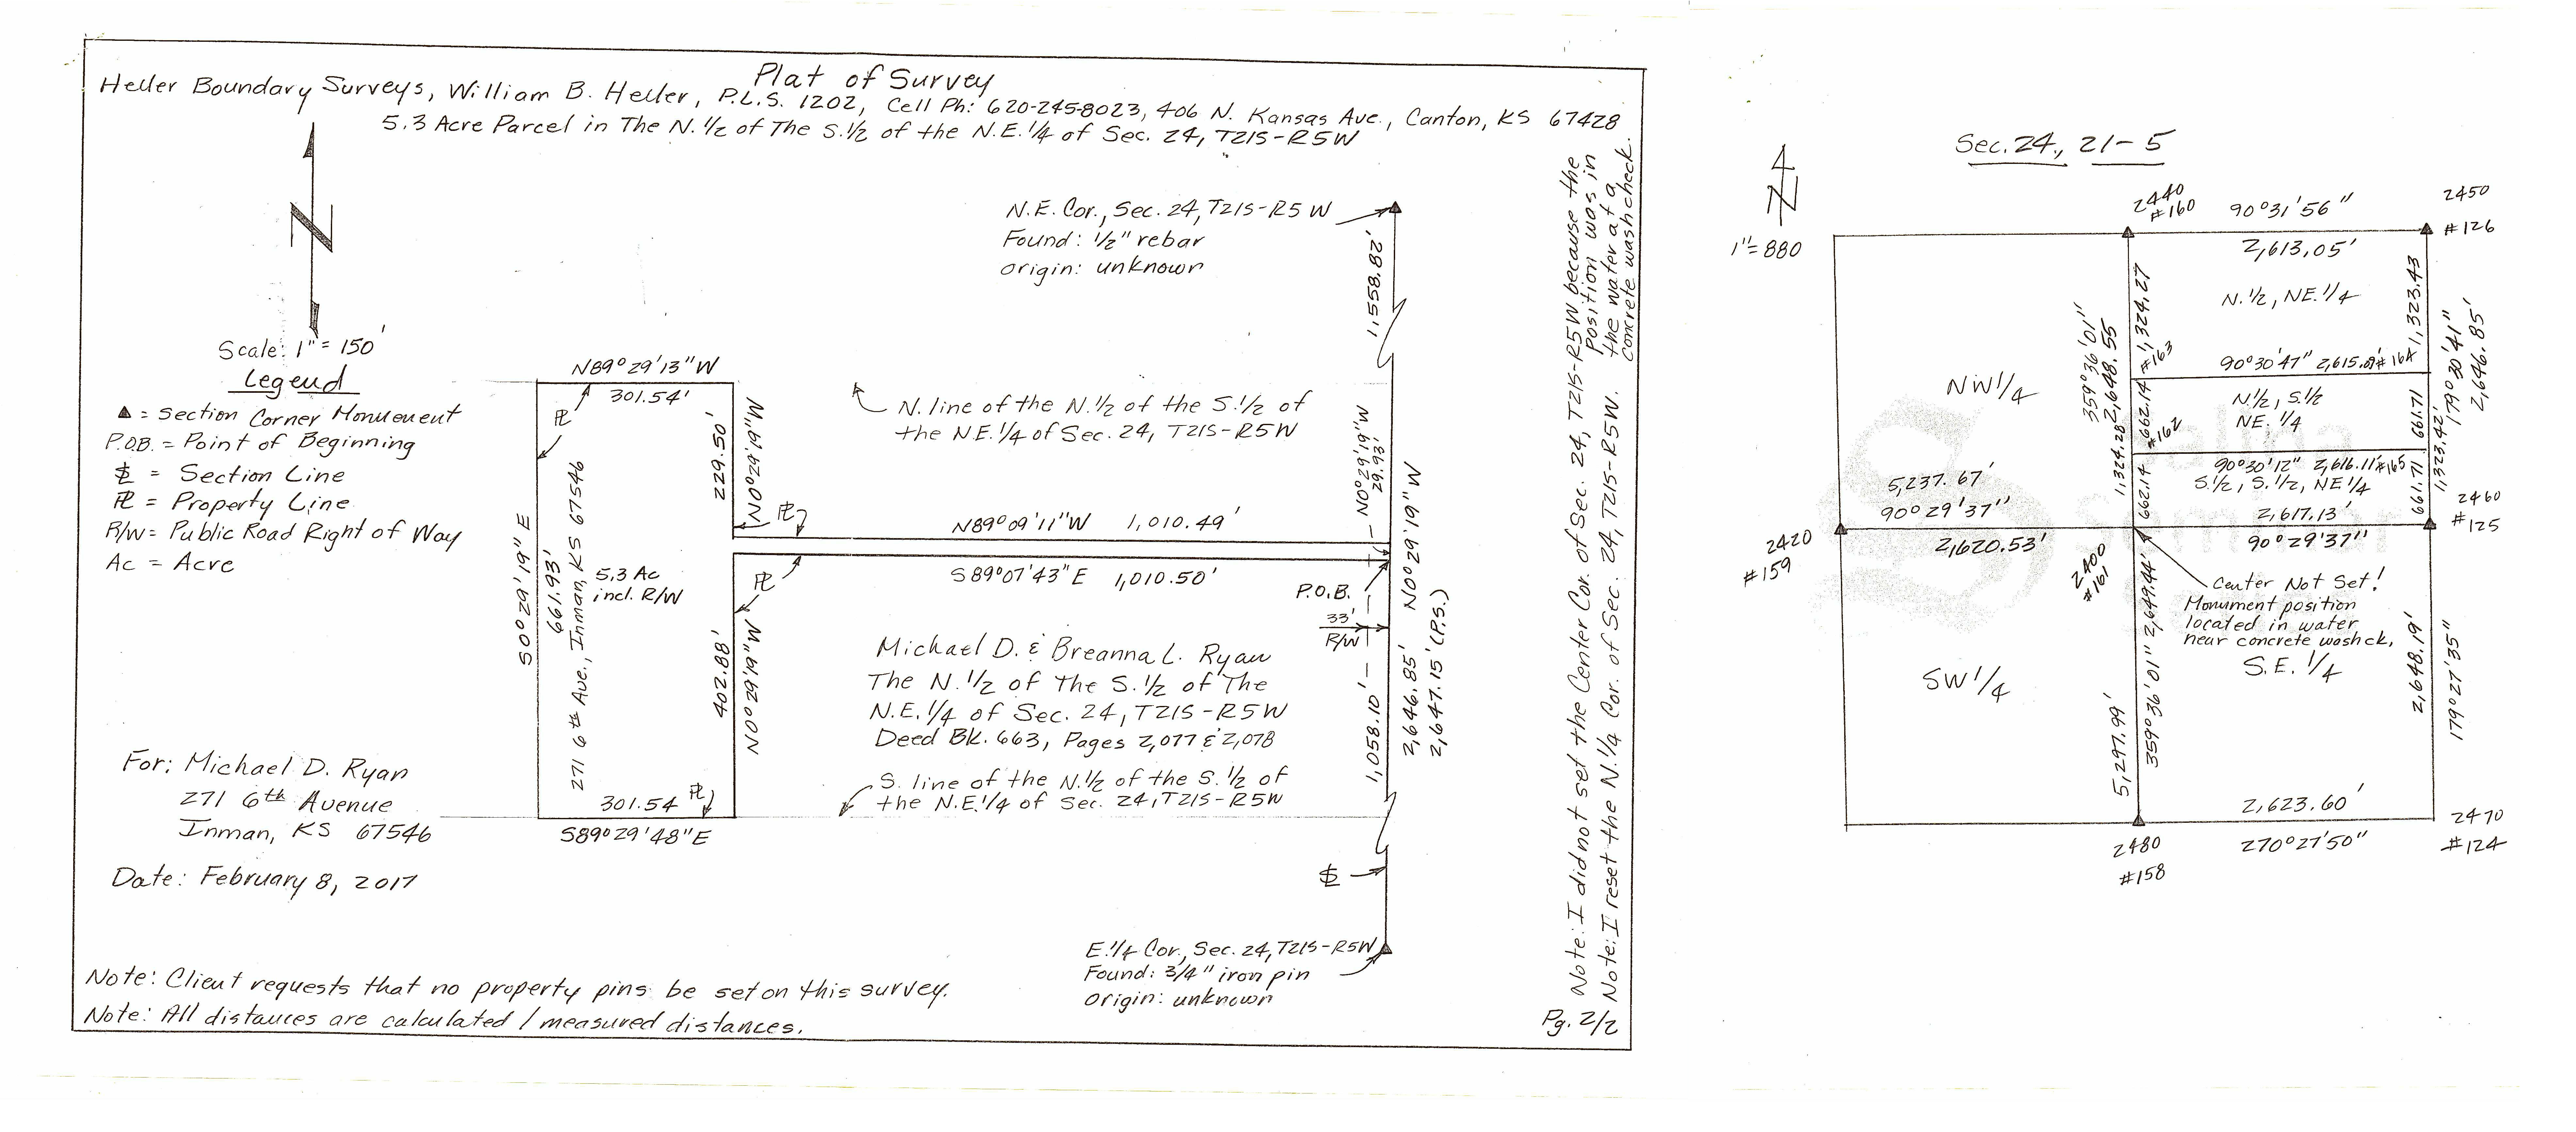 Plat of Survey
Heller Boundary Surveys, William B. Heller, P.L.S. 1202, Cell Ph: 620-245-8023, 406 N. Kansas Ave., Canton, KS 67428
5.3 Acre Parcel in The N.1/2 of The S.1/2 of the N.E.1/4 of Sec. 24, T21S-R5W
N
Scale: 1" = 150'
Legend
▲ = Section Corner Monument
P.O.B. = Point of Beginning
SL = Section Line
PL = Property Line
R/W = Public Road Right of Way
Ac = Acre
N.E. Cor., Sec. 24, T21S-R5W
Found: 1/2" rebar
origin: unknown
1,558.82'
N89°29'13"W
301.54'
PL
229.50'
N0°29'19"W
PL
N. line of the N.1/2 of the S.1/2 of
the NE.1/4 of Sec. 24, T21S-R5W
N0°29'19"W
29.93'
N89°09'11"W 1,010.49'
S89°07'43"E 1,010.50'
PL
P.O.B.
33'
R/W
S0°29'19"E
661.93'
271 6th Ave., Inman, KS 67546
5.3 Ac
incl. R/W
402.88'
N0°29'19"W
Michael D. & Breanna L. Ryan
The N.1/2 of The S.1/2 of The
N.E.1/4 of Sec. 24, T21S-R5W
Deed Bk. 663, Pages 2,077 & 2,078
1,058.10'
2,646.85'
N0°29'19"W
2,647.15' (P.S.)
S. line of the N.1/2 of the S.1/2 of
the N.E.1/4 of Sec. 24, T21S-R5W
301.54
PL
S89°29'48"E
SL
E.1/4 Cor., Sec. 24, T21S-R5W
Found: 3/4" iron pin
origin: unknown
For: Michael D. Ryan
271 6th Avenue
Inman, KS 67546
Date: February 8, 2017
Note: Client requests that no property pins be set on this survey.
Note: All distances are calculated / measured distances.
Note: I did not set the Center Cor. of Sec. 24, T21S-R5W because the
position was in
the water at a
concrete washcheck.
Note: I reset the N.1/4 Cor. of Sec. 24, T21S-R5W.
Pg. 2/2
Sec. 24, 21-5
N
1"=880
2440
#160
90°31'56"
2,613.05'
2450
#126
N.1/2, NE.1/4
1,324.27
1,323.43
359°36'01"
2,648.55
#163
90°30'47" 2,615.09' #164
NW1/4
N.1/2, S.1/2
NE.1/4
662.14
#162
661.71
179°30'41"
2,646.85'
1,324.28
1,323.42'
90°30'12" 2,616.11' #165
S.1/2, S.1/2, NE1/4
662.14
661.71
5,237.67'
90°29'37"
2420
#159
2,620.53'
2,617.13'
90°29'37"
2460
#125
2400
#161
Center Not Set!
Monument position
located in water
near concrete washck.
SW1/4
S.E.1/4
5,297.99'
359°36'01" 2,649.44'
2,648.19'
179°27'35"
2,623.60'
270°27'50"
2480
#158
2470
#124